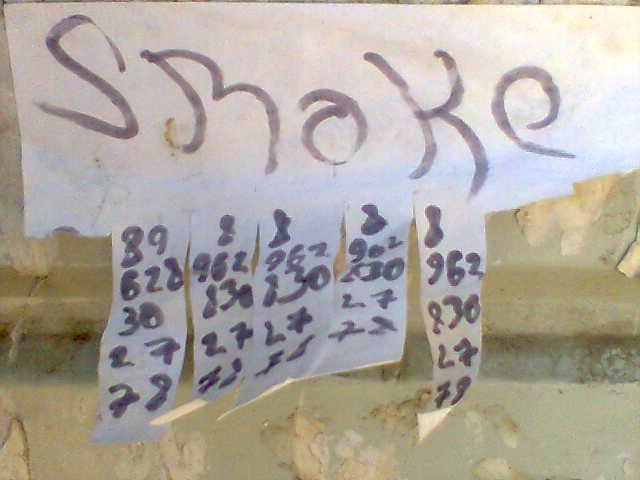 Smoke
89
628
30
27
78
8
962
830
27
78
8
962
830
27
78
8
962
830
27
78
8
962
830
27
78